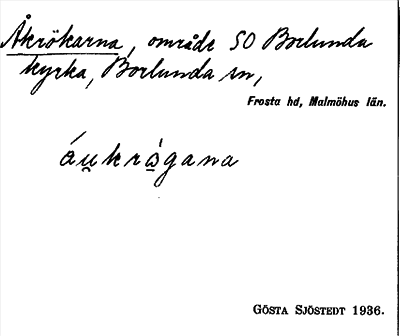 Åkrökarna, område SO Borlunda
kyrka, Borlunda sn,
Frosta hd, Malmöhus län.
áu̯krö̀gana
GÖSTA SJÖSTEDT 1936.